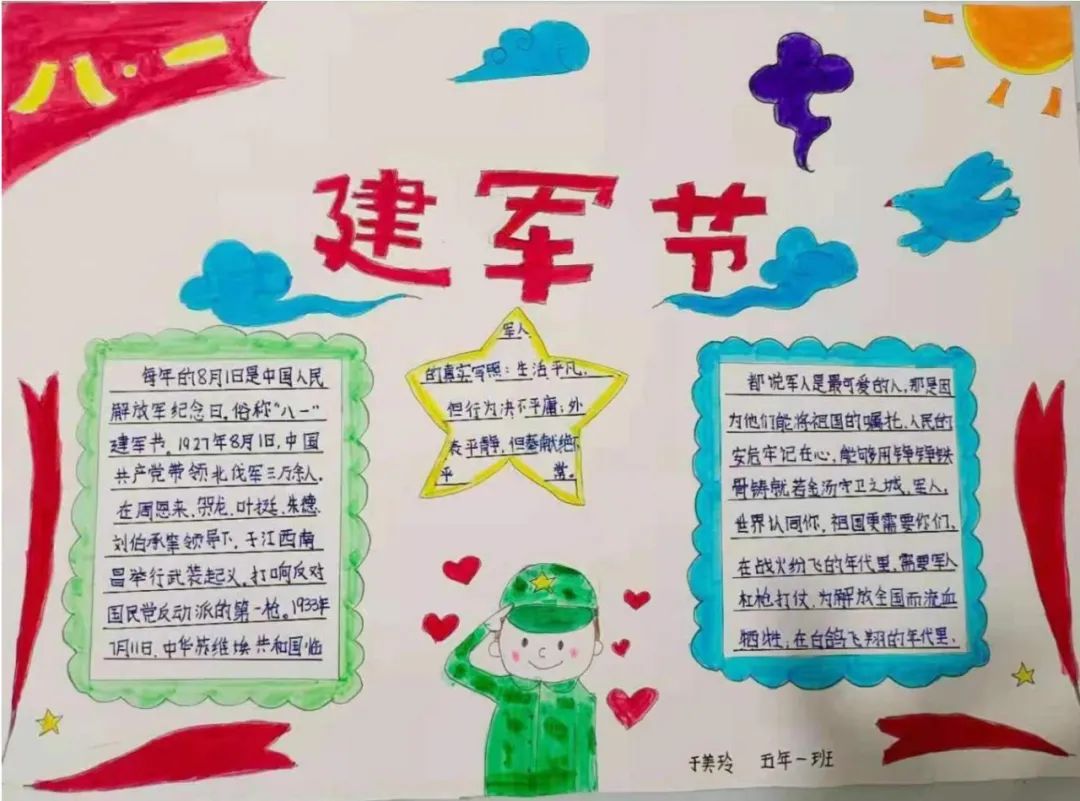 八·一
建军节
每年的8月1日是中国人民
解放军纪念日，俗称“八一”
建军节。1927年8月1日，中国
共产党带领北伐军三万余人，
在周恩来、贺龙、叶挺、朱德、
刘伯承率领导下，于江西南
昌举行武装起义，打响反对
国民党反动派的第一枪。1933年
7月11日，中华苏维埃共和国临
军人
的真实写照：生活平凡，
但行为决不平庸；外
表平静，但奉献绝不
平 常。
都说军人是最可爱的人，那是因
为他们能将祖国的嘱托、人民的
安危牢记在心，能够用铮铮铁
骨铸就若金汤守卫之城，军人，
世界认同你，祖国更需要你们，
在战火纷飞的年代里，需要军人
扛枪打仗，为解放全国而流血
牺牲；在白鸽飞翔的年代里，
于美玲 五年一班